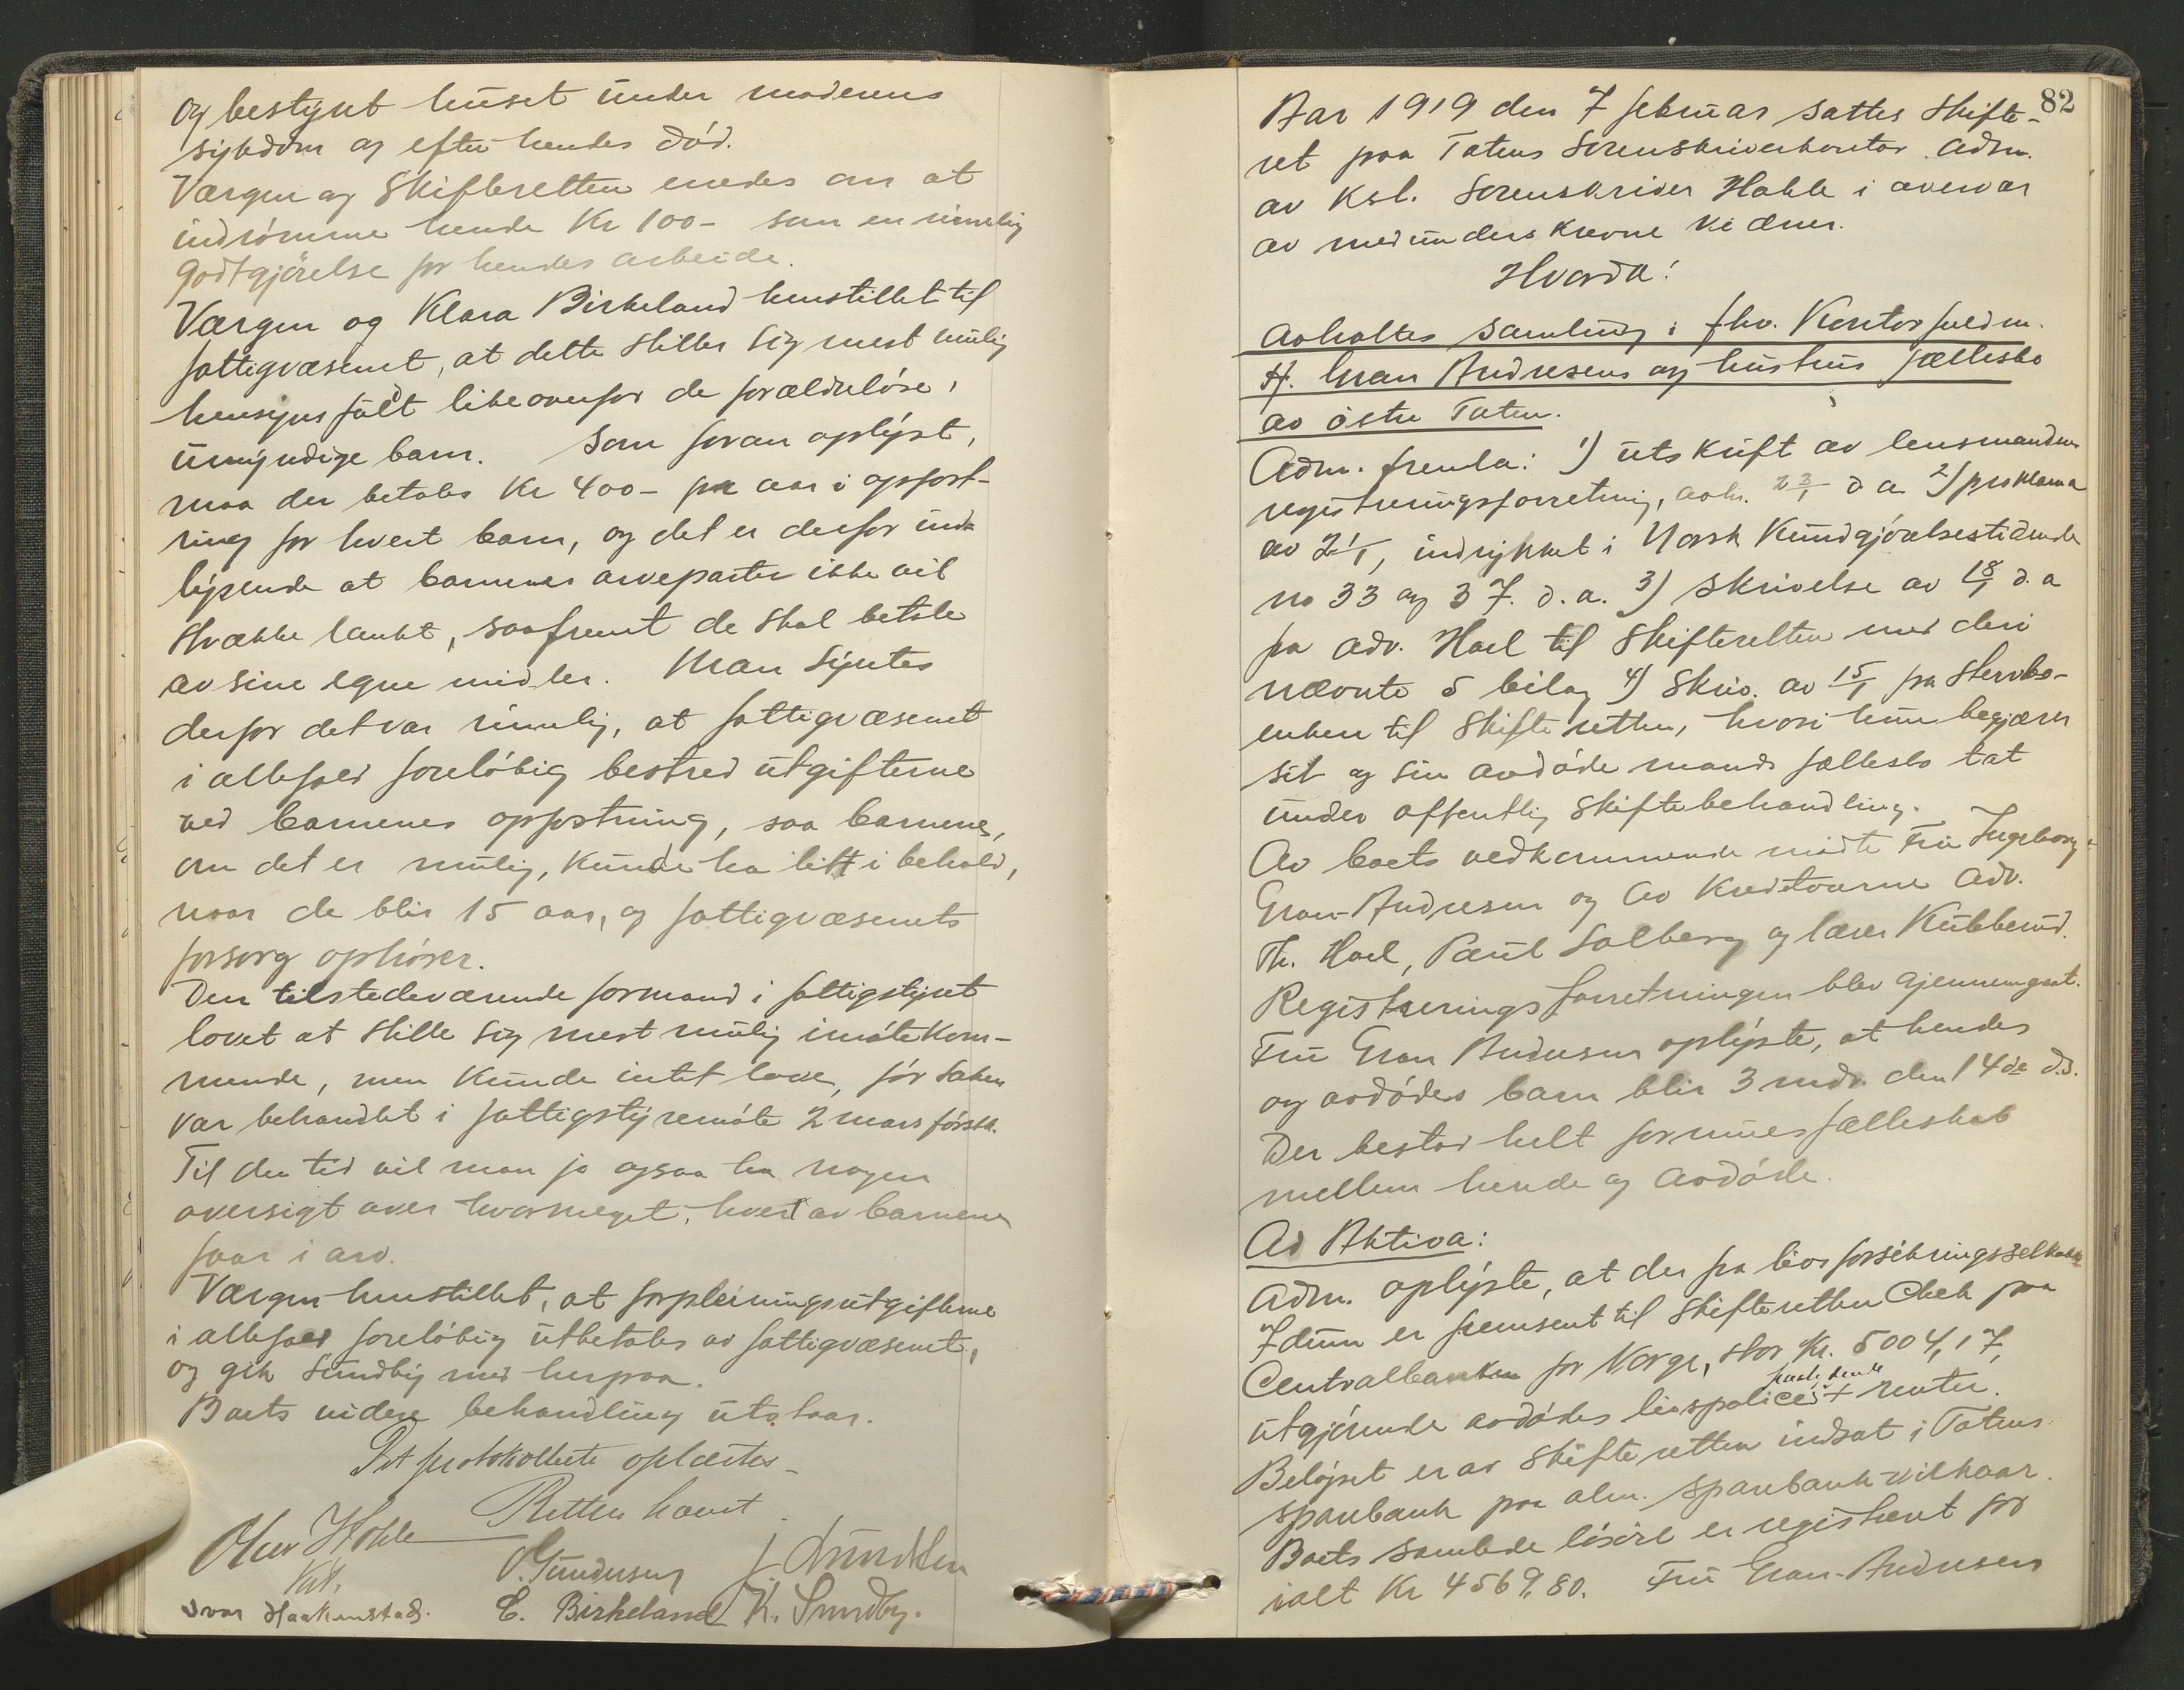 og bestyrt huset under moderens
sykdom og efter hendes död.
Værgen og Skifteretten enedes om at
indrömme hende Kr 100 - som en rimelig
godtgjörelse for hendes arbeide.
Værgen og Klara Birkeland henstillet til
fattigvæsenet, at dette stiller sig mest mulig
hensynsfuldt likeoverfor de forældrelöse,
umyndige barn. Som foran oplyst,
maa der betales Kr 400 - pr aar i opfost-
ring for hvert barn, og det er derfor ind-
lysende at barnenes arveparter ikke vil
strække langt, saafremt de skal betale
av sine egne midler. Man syntes
derfor det var rimelig, at fattigvæsenet
i allefald foreløbig bestred utgifterne
ved barnenes opfostring, saa barnene,
om det er mulig, kunde ha litt i behold,
naar de blir 15 aar, og fattigvæsenets
forsorg ophörer.
Den tilstedeværende formand i fattigstyret
lovet at stille sig mest mulig imötekom-
mende, men kunde intet love, för saken
var behandlet i fattigstyremöte 2 mars förstk.
Til den tid vil man jo ogsaa ha nogen
oversigt over hvormeget, hvert av barnene
faar i arv.
Værgen henstillet, at forpleiningsutgifterne
i allefald forelöbig utbetales av fattigvæsenet,
og gik Sundby med herpaa.
Boets videre behandling utstaar.
Det protokollerte oplæstes -
Retten hævet.
Olav Hohle O. Gundersen J. Lundsten
Kst.
Ivar Haakenstad. E. Birkeland K. Sundby.
82
Aar 1919 den 7 februar sattes Skifte-
ret paa Totens Sorenskriverkontor adm.
av Kst. Sorenskriver Hohle i overvær
av medunderskrevne vidner.
Hvorda!
Avholtes samling i fhv. Kontorfuldm.
H. Gran Andresens og hustrus fællesbo
av östre Toten.
Adm. fremla: 1) utskrift av lensmandens
registreringsforretning, avh. 23/1 d a 2) proklama
av 21/1, indrykket i Norsk Kundgjörelsestidende
no 33 og 37. d. a. 3) skrivelse av 18/1 d. a
fra adv. Hoel til Skifteretten med deri
nævnte 5 bilag 4) Skriv. av 15/1 fra Stervbo-
enken til Skifteretten, hvori hun begjærer
sit og sin avdöde mands fællesbo tat
under offentlig skiftebehandling.
Av boets vedkommende mödte Fru Ingeborg
Gran-Andresen og av Kreditorerne Adv.
Th. Hoel, Paul Solberg og lærer Kubberud.
Registreringsforretningen blev gjennemgaat.
Fru Gran Andresen oplyste, at hendes
og avdödes barn blir 3 mdr. den 14de ds.
Der bestod helt formuesfælleskab
mellem hende og avdöde.
Ad Aktiva:
Adm. oplyste, at der fra livsforsikringsselskabet
Idun er fremsent til Skifteretten Chek paa
Centralbanken for Norge, stor Kr. 5004,17,
utgjörende avdödes livspolice + renter.
Belöpet er av Skifteretten indsat i Totens
Sparebank paa alm. sparebank-vilkaar.
Boets samlede lösöre er registreret for
ialt Kr 4569,80. Fru Gran-Andresen